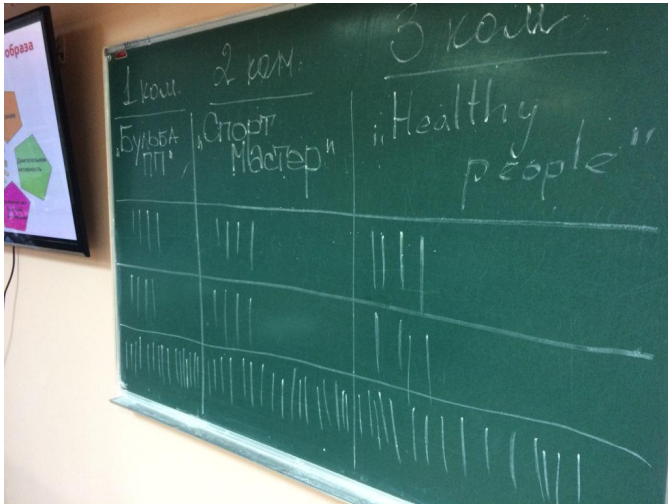 образа
1 ком.
2 ком.
3 ком
„Бульба
ПП"
„Спорт
Мастер"
„Healthy
people"